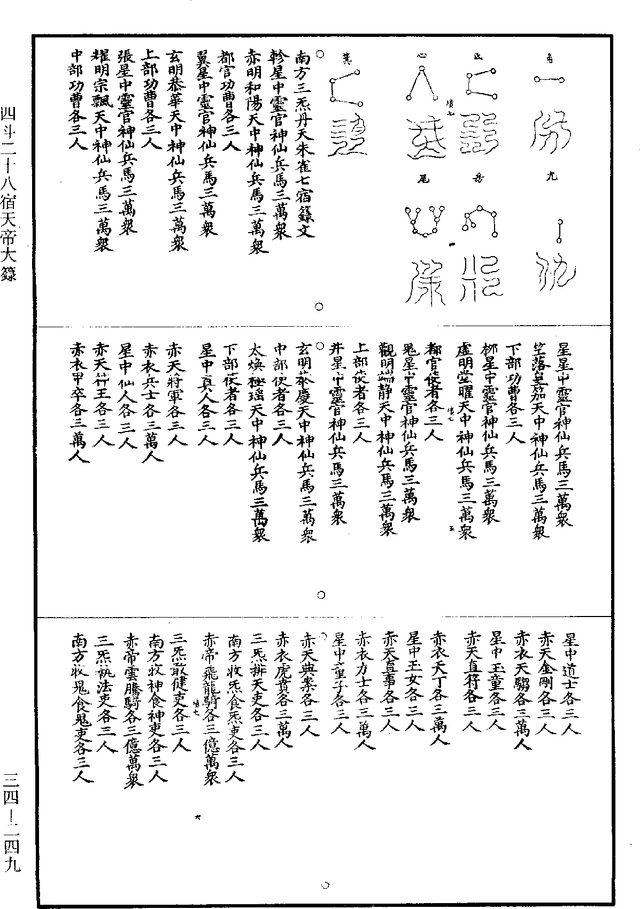 角
亢
氐
房
心
尾
箕
南方三炁丹天朱雀七宿籙文
軫星中靈官神仙兵馬三萬衆
赤明和陽天中神仙兵馬三萬衆
都官功曹各三人
翼星中靈官神仙兵馬三萬衆
玄明恭華天中神仙兵馬三萬衆
上部功曹各三人
張星中靈官神仙兵馬三萬衆
耀明宗飄天中神仙兵馬三萬衆
中部功曹各三人
星星中靈官神仙兵馬三萬衆
竺落皇笳天中神仙兵馬三萬衆
下部功曹各三人
柳星中靈官神仙兵馬三萬衆
虛明堂曜天中神仙兵馬三萬衆
都官使者各三人
鬼星中靈官神仙兵馬三萬衆
觀明端靜天中神仙兵馬三萬衆
上部使者各三人
井星中靈官神仙兵馬三萬衆
玄明恭慶天中神仙兵馬三萬衆
中部使者各三人
太煥極瑶天中神仙兵馬三萬衆
下部使者各三人
星中真人各三人
赤天將軍各三人
赤衣兵士各三萬人
星中仙人各三人
赤天符王各三人
赤衣甲卒各三萬人
星中道士各三人
赤天金剛各三人
赤衣天騶各三萬人
星中玉童各三人
赤天直符各三人
赤衣天丁各三萬人
星中玉女各三人
赤天直事各三人
赤衣力士各三萬人
星中童子各三人
赤天典祟各三人
赤衣虎賁各三萬人
三炁排天吏各三人
南方收炁食炁吏各三人
赤帝飛龍騎各三億萬衆
三炁嚴健吏各三人
南方收神食神吏各三人
赤帝雲騰騎各三億萬衆
三炁執法吏各三人
南方收鬼食鬼吏各三人
四斗二十八宿天帝大籙
三四—二四九